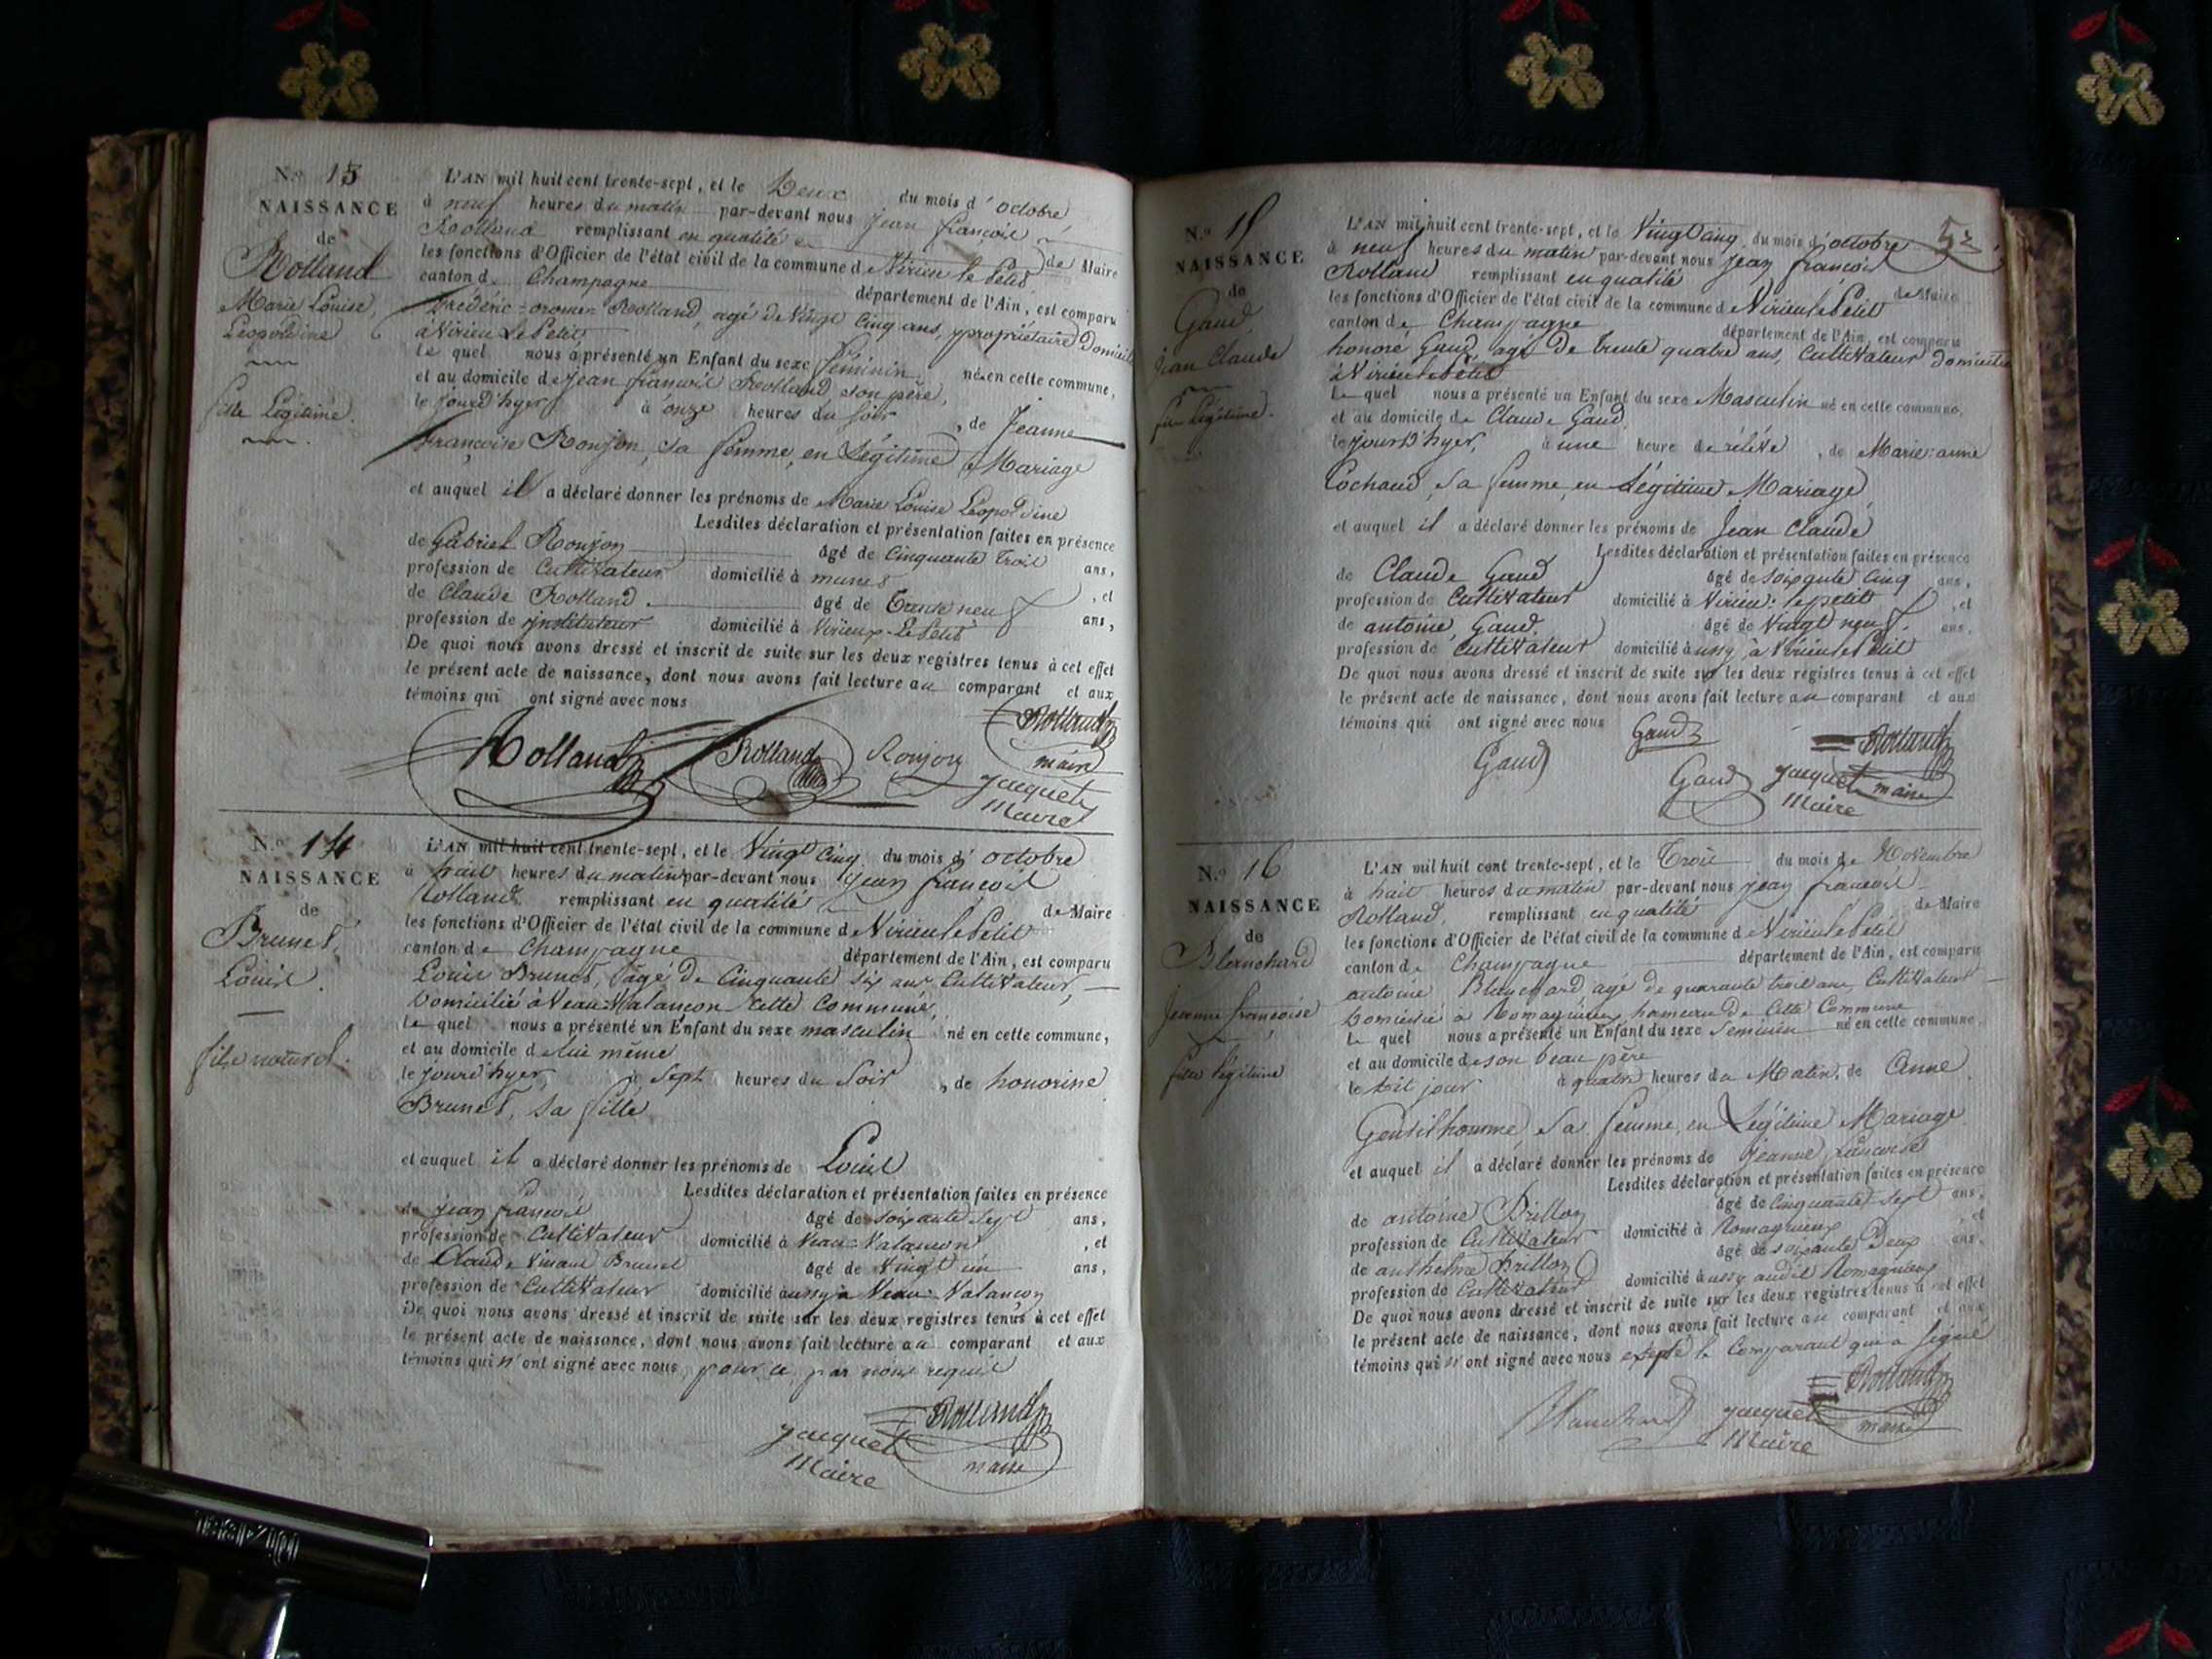 N.º 13
NAISSANCE
de
Rolland
Marie Louise,
Léopoldine
fille Légitime.
L'AN mil huit cent trente-sept, et le Deux du mois d'octobre,
à neuf heures du matin par-devant nous Jean françois
Rolland remplissant en qualité de Maire
les fonctions d'Officier de l'état civil de la commune de Virieu le Petit
canton de Champagne département de l'Ain, est comparu
frédéric Rolland, agé de Vingt Cinq ans, propriétaire Domicilié
à Virieu Le Petit,
le quel nous a présenté un Enfant du sexe féminin né en cette commune,
et au domicile de jean françois Rolland, son père,
le jourd'hyer à onze heures du soir, de Jeanne
françoise Roujon, sa femme, en Légitime Mariage
et auquel il a déclaré donner les prénoms de Marie Louise Léopoldine
Lesdites déclaration et présentation faites en présence
de Gabriel Roujon âgé de Cinquante Trois ans,
profession de Cultivateur domicilié à munet, et
de Claude Rolland âgé de Trente neuf ans,
profession de instituteur domicilié à Virieux-Le Petit
De quoi nous avons dressé et inscrit de suite sur les deux registres tenus à cet effet
le présent acte de naissance, dont nous avons fait lecture au comparant et aux
témoins qui ont signé avec nous
Rolland Rolland Roujon Rolland
maire
Jacquet
Maire
N.º 14
NAISSANCE
de
Brunet,
Louis.
fils naturel.
L'AN mil huit cent trente-sept, et le Vingt Cinq du mois d'octobre
à huit heures du matin par-devant nous Jean françois
Rolland remplissant en qualité de Maire
les fonctions d'Officier de l'état civil de la commune de Virieu le Petit
canton de Champagne département de l'Ain, est comparu
Louis Brunet, âgé de Cinquante six ans Cultivateur,
Domicilié à Veau-Valancon cette Commune,
le quel nous a présenté un Enfant du sexe masculin né en cette commune,
et au domicile de lui même
le jourd'hyer, à Sept heures du Soir, de honorine
Brunet, sa fille
et auquel il a déclaré donner les prénoms de Louis
Lesdites déclaration et présentation faites en présence
de jean françois âgé de soixante sept ans,
profession de Cultivateur domicilié à Veau-Valancon, et
de Claude Brunet âgé de Vingt un ans,
profession de Cultivateur domicilié aussy à Veau-Valancon
De quoi nous avons dressé et inscrit de suite sur les deux registres tenus à cet effet
le présent acte de naissance, dont nous avons fait lecture au comparant et aux
témoins qui n'ont signé avec nous, pour ce par nous requis
Rolland
maire
Jacquet
Maire
52
N.º 15
NAISSANCE
de
Gaud,
Jean Claude
fils légitime.
L'AN mil huit cent trente-sept, et le Vingt cinq du mois d'octobre
à neuf heures du matin par-devant nous jean françois
Rolland remplissant en qualité de Maire
les fonctions d'Officier de l'état civil de la commune de Virieu le Petit
canton de Champagne département de l'Ain, est comparu
honoré Gaud, agé de trente quatre ans, Cultivateur domicilié
à Virieu le Petit
le quel nous a présenté un Enfant du sexe Masculin né en cette commune,
et au domicile de Claude Gaud
le jourd'hyer, à une heure de , de Marie-anne
Cochaud, sa femme, en Légitime Mariage,
et auquel il a déclaré donner les prénoms de Jean Claude
Lesdites déclaration et présentation faites en présence
de Claude Gaud âgé de soixante cinq ans,
profession de Cultivateur domicilié à Virieu-le petit, et
de antoine Gaud, âgé de Vingt neuf ans,
profession de Cultivateur domicilié aussy à Virieu le Petit
De quoi nous avons dressé et inscrit de suite sur les deux registres tenus à cet effet
le présent acte de naissance, dont nous avons fait lecture au comparant et aux
témoins qui ont signé avec nous
Gaud Gaud Gaud Rolland
maire
Jacquet
Maire
N.º 16
NAISSANCE
de
Blanchard
Jeanne françoise
légitime
L'AN mil huit cent trente-sept, et le Trois du mois de Novembre
à huit heures du matin par-devant nous jean françois
Rolland, remplissant en qualité de Maire
les fonctions d'Officier de l'état civil de la commune de Virieu le Petit
canton de Champagne département de l'Ain, est comparu
antoine Blanchard agé de quarante trois ans, Cultivateur
Domicilié à Romagnieux, hameau de Cette Commune
le quel nous a présenté un Enfant du sexe féminin né en cette commune
et au domicile de son beau père
le dit jour à quatre heures du Matin, de Anne
Gentilhomme, sa femme, en Légitime Mariage
et auquel il a déclaré donner les prénoms de Jeanne françoise
Lesdites déclaration et présentation faites en présence
de antoine Brillon âgé de Cinquante sept ans,
profession de Cultivateur domicilié à Romagnieux, et
de anthelme Brillon âgé de soixante Deux ans,
profession de Cultivateur domicilié aussy audit Romagnieux
De quoi nous avons dressé et inscrit de suite sur les deux registres tenus à cet effet
le présent acte de naissance, dont nous avons fait lecture au comparant et aux
témoins qui n'ont signé avec nous excepté le Comparant qui a signé
Blanchard Rolland
maire
Jacquet
Maire